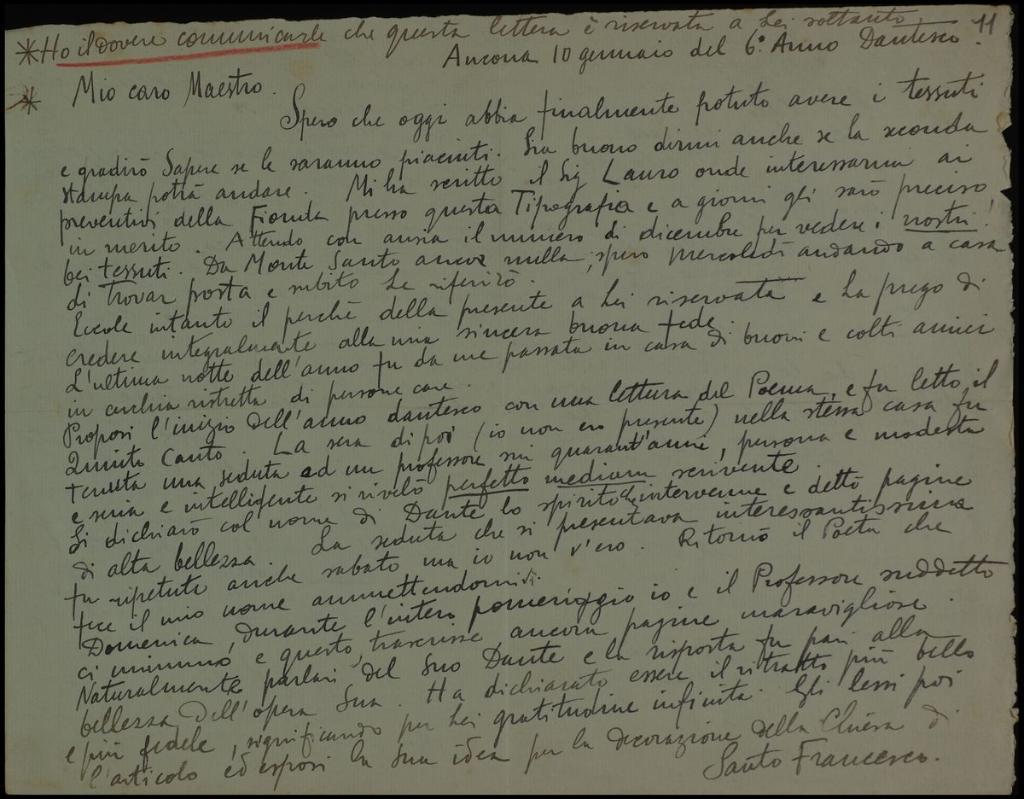 * Ho il dovere comunicarle che questa lettera è riservata a Lei soltanto. 11
Ancona 10 gennaio del 6° Anno Dantesco.
* Mio caro Maestro.
Spero che oggi abbia finalmente potuto avere i tessuti
e gradirò sapere se le saranno piaciuti. Sia buono dirmi anche se la seconda
stampa potrà andare. Mi ha scritto il Sig Lauro onde interessarmi ai
preventivi della Fionda presso questa Tipografia e a giorni gli sarò preciso
in merito. Attendo con ansia il numero di dicembre per vedere i nostri
bei tessuti. Da Monte Santo ancora nulla, spero mercoledì andando a casa
di trovar posta e subito Le riferirò.
Eccole intanto il perchè della presente a Lei riservata e La prego di
credere integralmente alla mia sincera buona fede.
L'ultima notte dell'anno fu da me passata in casa di buoni e colti amici
in cerchia ristretta di persone care.
Proposi l'inizio dell'anno dantesco con una lettura del Poema, e fu letto il
Quinto Canto. La sera di poi (io non ero presente) nella stessa casa fu
tenuta una seduta ed un professore sui quarant'anni, persona e modesta
e seria e intelligente si rivelò perfetto medium scrivente.
Si dichiarò col nome di Dante lo spirito che intervenne e dettò pagine
di alta bellezza. La seduta che si presentava interessantissima
fu ripetuta anche sabato ma io non v'ero. Ritornò il Poeta che
fece il mio nome ammettendomivi.
Domenica, durante l'intero pomeriggio io e il Professore suddetto
ci unimmo e questo, trascrisse ancora pagine maravigliose.
Naturalmente parlai del Suo Dante e la risposta fu pari alla
bellezza dell'opera Sua. Ha dichiarato essere il ritratto più bello
e più fedele, significando per Lei gratitudine infinita. Gli lessi poi
l'articolo ed esposi la Sua idea per la decorazione della Chiesa di
Santo Francesco.